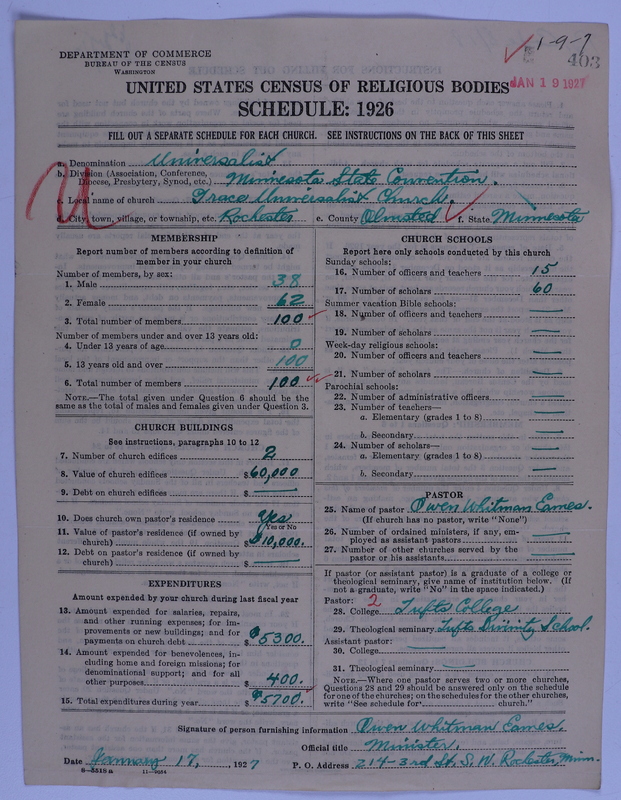 1-9-7
403
JAN 19 1927
DEPARTMENT OF COMMERCE
BUREAU OF THE CENSUS
WASHINGTON
UNITED STATES CENSUS OF RELIGIOUS BODIES
SCHEDULE: 1926
FILL OUT A SEPARATE SCHEDULE FOR EACH CHURCH. SEE INSTRUCTIONS ON THE BACK OF THIS SHEET
U
a. Denomination Universalist
b. Division (Association, Conference,
Diocese, Presbytery, Synod, etc.) Minnesota State Convention.
c. Local name of church Grace Universalist Church.
City, town, village, or township, etc. Rochester e. County Olmsted f. State Minnesota
MEMBERSHIP
Report number of members according to definition of
member in your church
Number of members, by sex:
1. Male 38
2. Female 62
3. Total number of members 100
Number of members under and over 13 years old:
4. Under 13 years of age 0
5. 13 years old and over 100
6. Total number of members 100
NOTE.—The total given under Question 6 should be the
same as the total of males and females given under Question 3.
CHURCH BUILDINGS
See instructions, paragraphs 10 to 12
7. Number of church edifices 2
8. Value of church edifices $60,000
9. Debt on church edifices $ —
10. Does church own pastor's residence Yes
Yes or No
11. Value of pastor's residence (if owned by
church) $10,000.
12. Debt on pastor's residence (if owned by
church) $ —
EXPENDITURES
Amount expended by your church during last fiscal year
13. Amount expended for salaries, repairs,
and other running expenses; for im-
provements or new buildings; and for
payments on church debt $5300.
14. Amount expended for benevolences, in-
cluding home and foreign missions; for
denominational support; and for all
other purposes $ 400.
15. Total expenditures during year $5700.
CHURCH SCHOOLS
Report here only schools conducted by this church
Sunday schools:
16. Number of officers and teachers 15
17. Number of scholars 60
Summer vacation Bible schools:
18. Number of officers and teachers —
19. Number of scholars —
Week-day religious schools:
20. Number of officers and teachers —
21. Number of scholars —
Parochial schools:
22. Number of administrative officers —
23. Number of teachers—
a. Elementary (grades 1 to 8) —
b. Secondary —
24. Number of scholars—
a. Elementary (grades 1 to 8) —
b. Secondary —
PASTOR
25. Name of pastor Owen Whitman Eames.
(If church has no pastor, write "None")
26. Number of ordained ministers, if any, em-
ployed as assistant pastors —
27. Number of other churches served by the
pastor or his assistants —
If pastor (or assistant pastor) is a graduate of a college or
theological seminary, give name of institution below. (If
not a graduate, write "No" in the space indicated.)
Pastor: 2
28. College Tufts College
29. Theological seminary Tufts Divinity School.
Assistant pastor:
30. College —
31. Theological seminary —
NOTE.—Where one pastor serves two or more churches,
Questions 28 and 29 should be answered only on the schedule
for one of the churches; on the schedules for the other churches,
write "See schedule for church."
Signature of person furnishing information Owen Whitman Eames.
Official title Minister.
Date January 17, 1927 P. O. Address 214-3rd St. S. W. Rochester, Minn.
8-5518a 11-9054